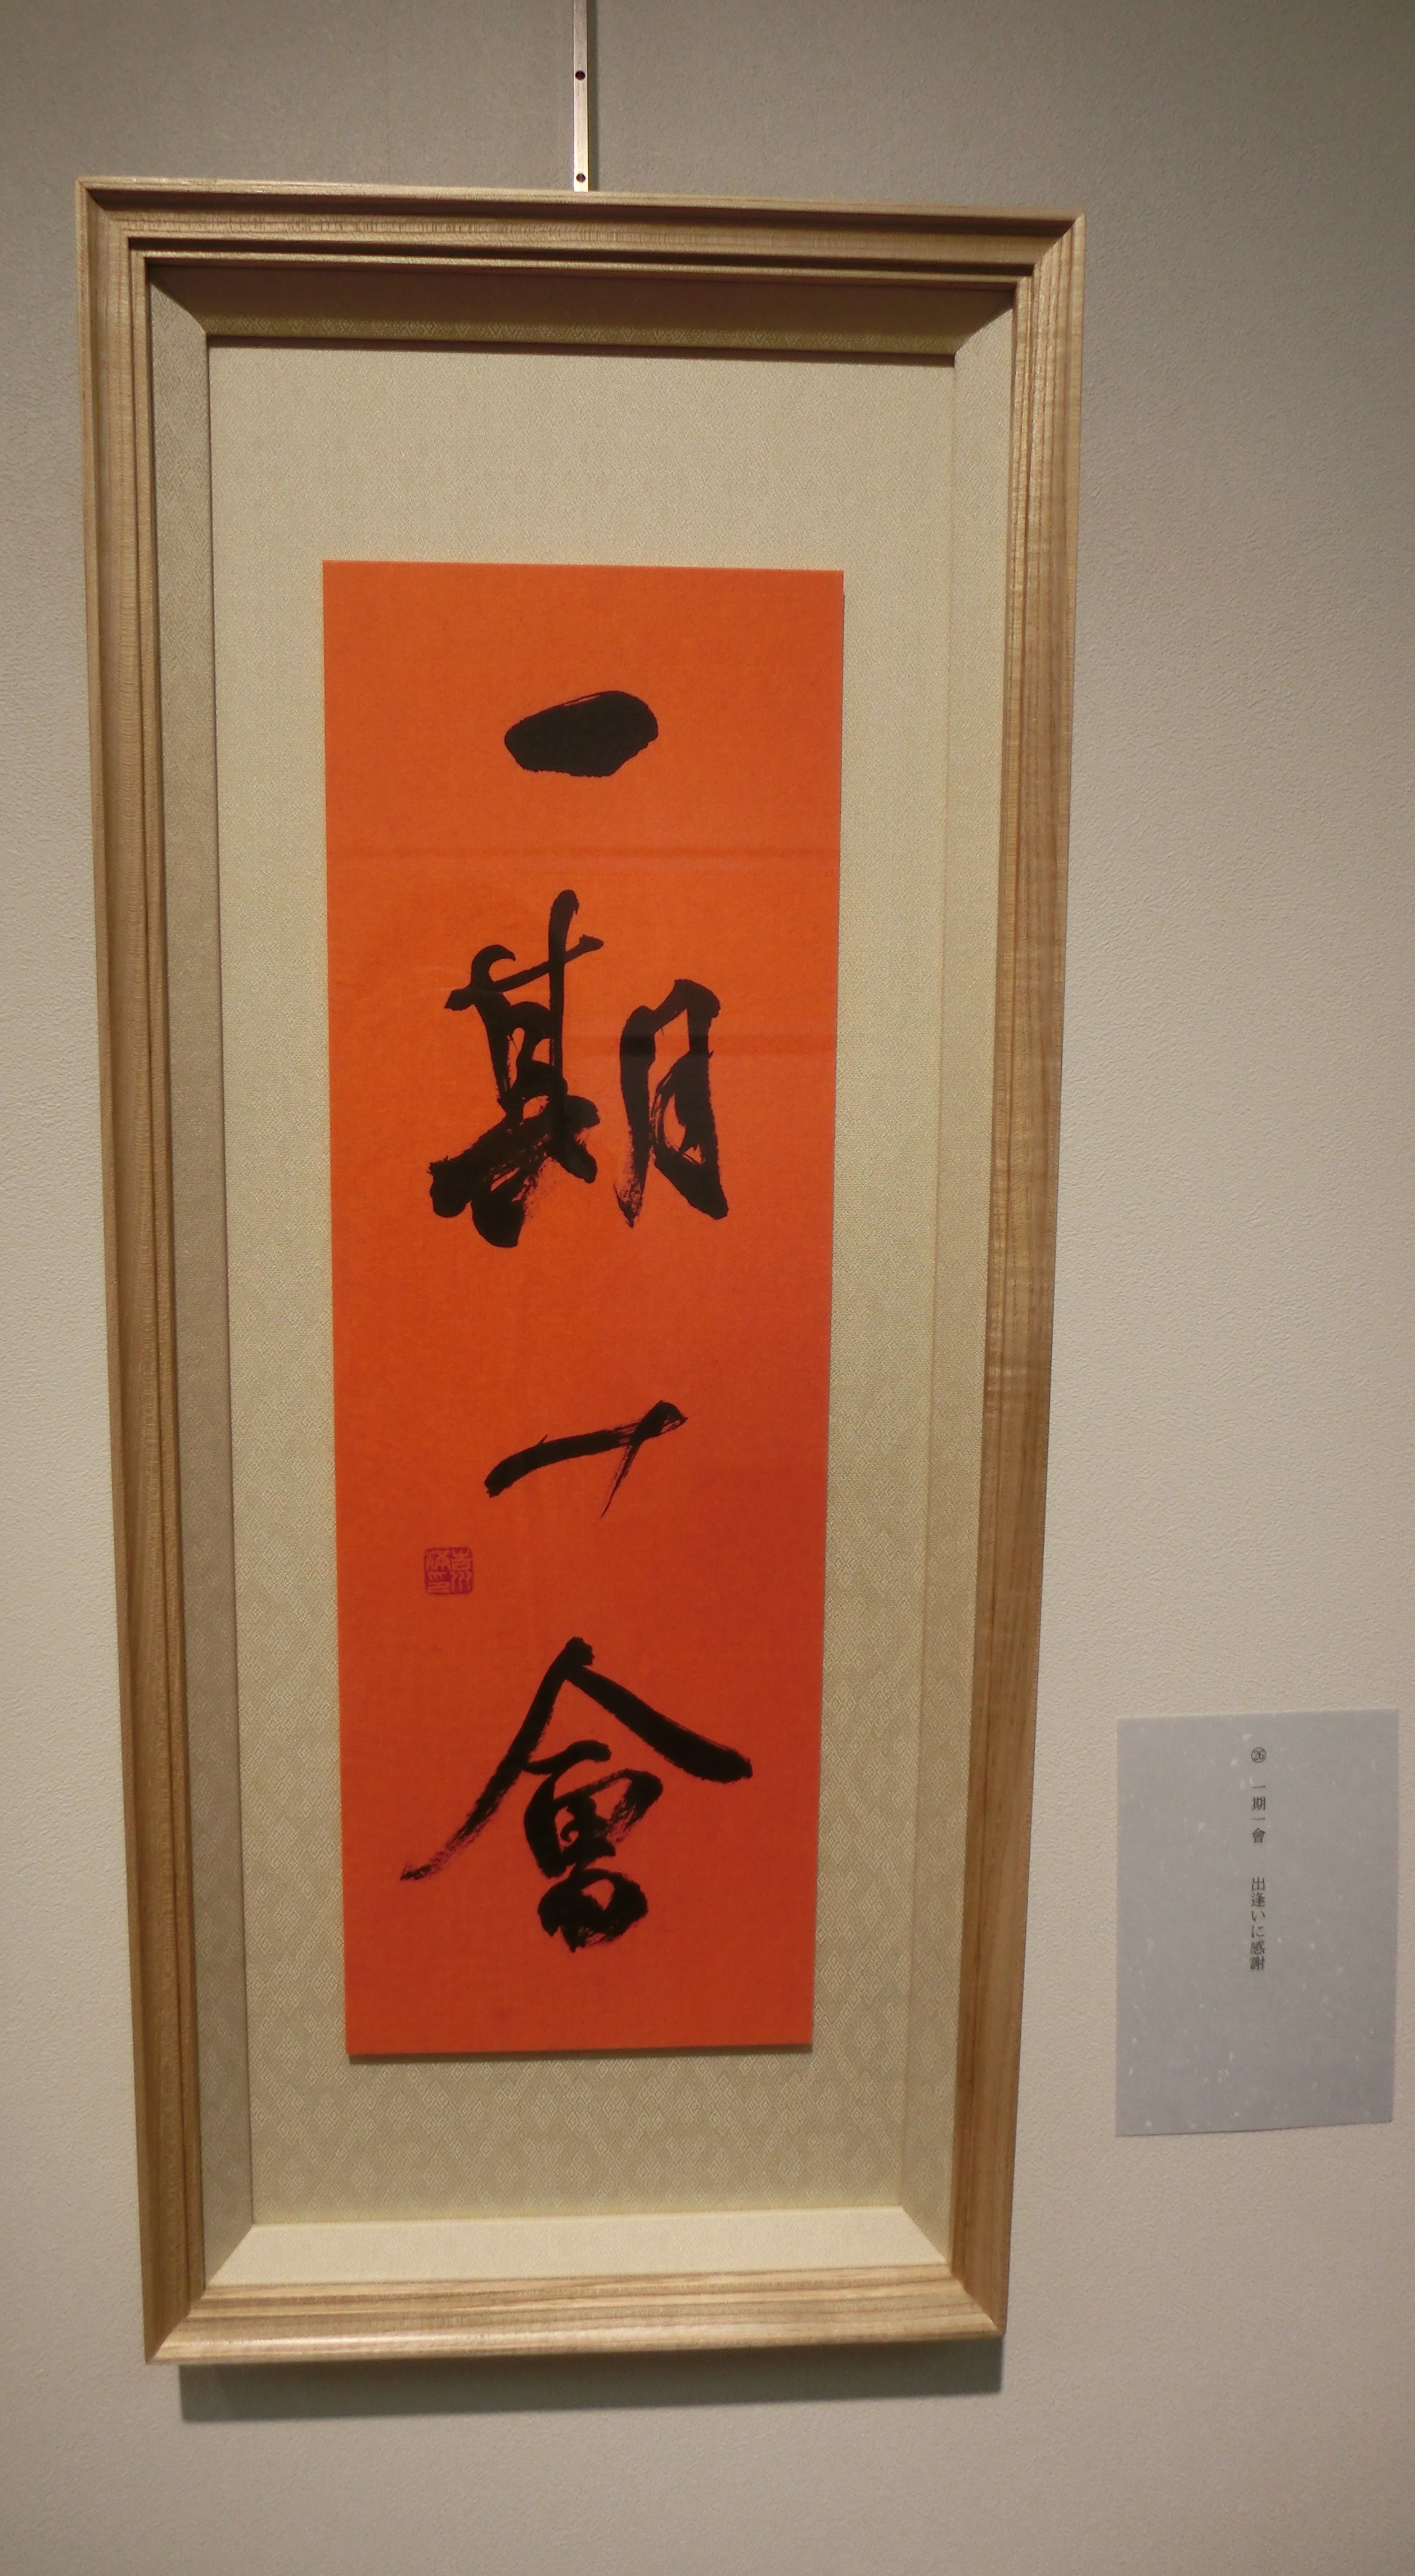 一期一會
㉖ 一期一會 出逢いに感謝